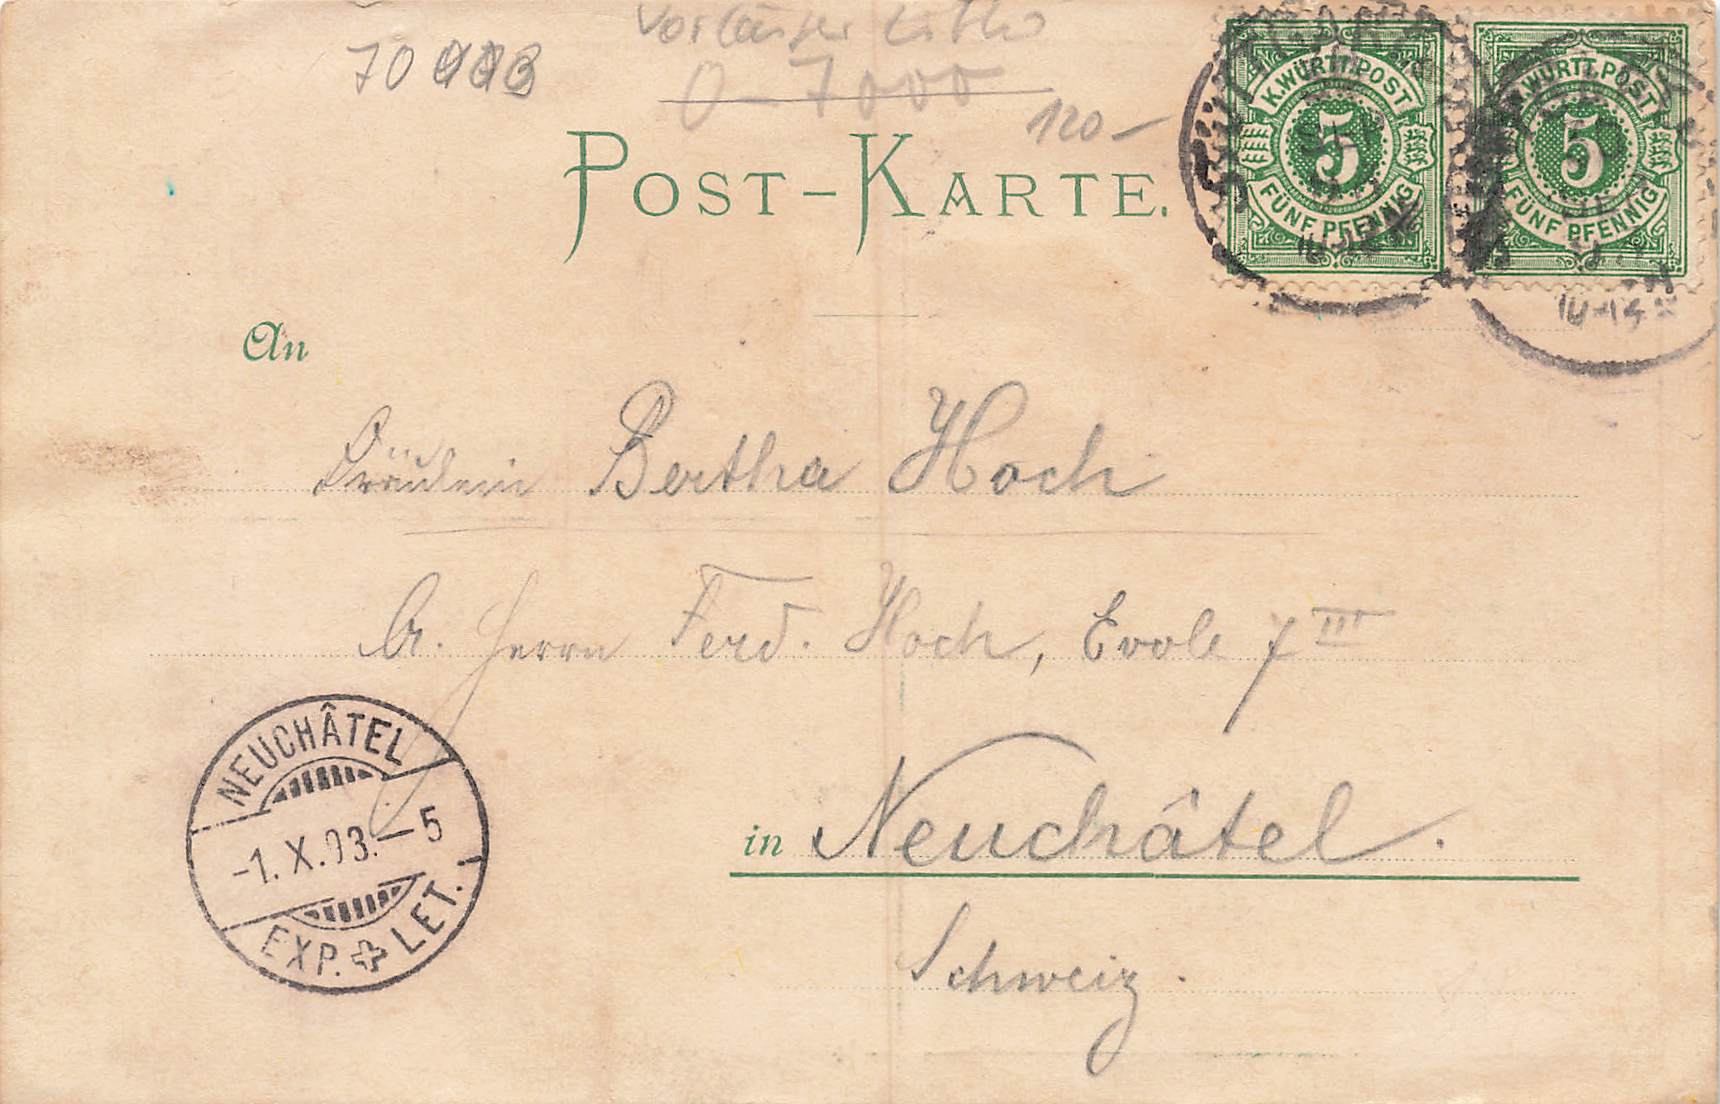 Vorläufer Litho
70
0-7000
120-
POST-KARTE.
K.WÜRTT.POST
5
FÜNF PFENNIG
K.WÜRTT.POST
5
FÜNF PFENNIG
STUTTGART
SEP
An
Fräulein Bertha Hoch
A. Herrn Ferd. Hoch, Evole 7 III
NEUCHÂTEL
-1.X.93.-5
EXP. LET.
in Neuchâtel.
Schweiz.